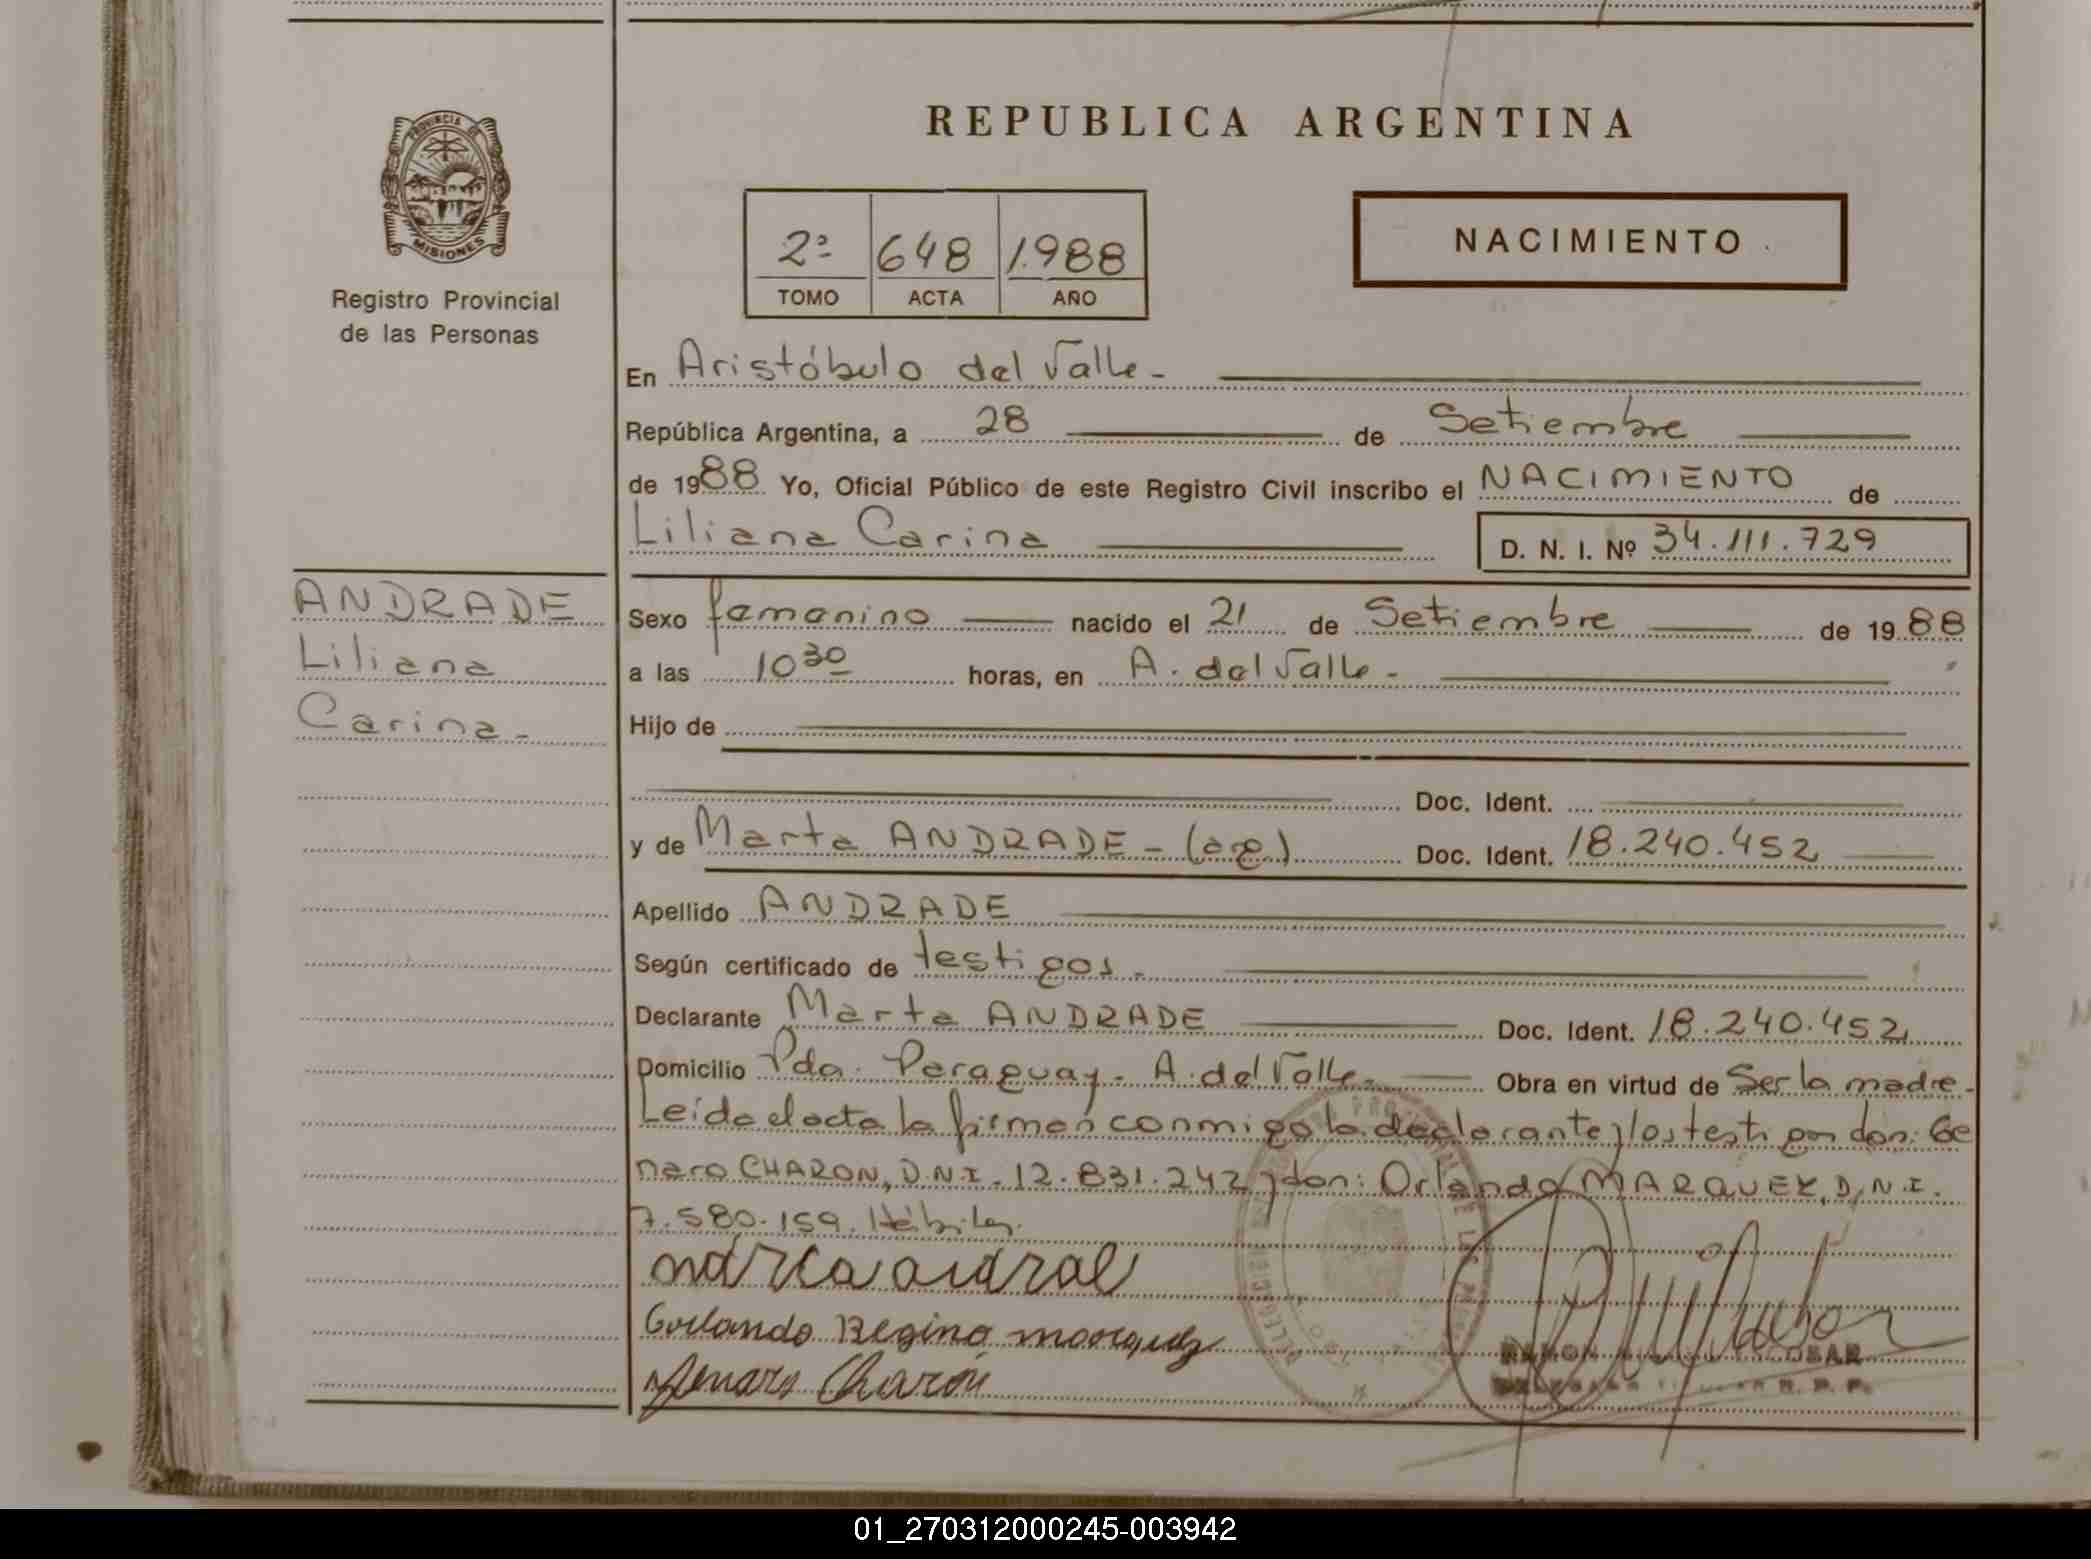 PROVINCIA DE
MISIONES
Registro Provincial
de las Personas
REPUBLICA ARGENTINA
2º 648 1.988
TOMO ACTA AÑO
NACIMIENTO
En Aristóbulo del Valle -
República Argentina, a 28 de Setiembre
de 1988 Yo, Oficial Público de este Registro Civil inscribo el NACIMIENTO de
Liliana Carina
D. N. I. Nº 34.111.729
ANDRADE
Liliana
Carina -
Sexo femenino nacido el 21 de Setiembre de 1988
a las 10 30 horas, en A. del Valle -
Hijo de
Doc. Ident.
y de Marta ANDRADE - (arg) Doc. Ident. 18.240.452
Apellido ANDRADE
Según certificado de testigos -
Declarante Marta ANDRADE Doc. Ident. 18.240.452
Domicilio Pda. Paraguay - A. del Valle - Obra en virtud de Ser la madre -
Leída el acta la firman conmigo la declarante y los testigos don: Ge
naro CHARON, D.N.I. 12.831.242 y don: Orlando MARQUEZ, D.N.I.
7.580.159. Hábiles.
Orlando Regino marquez
Genaro Charón
RAMON ESCOBAR
01_270312000245-003942